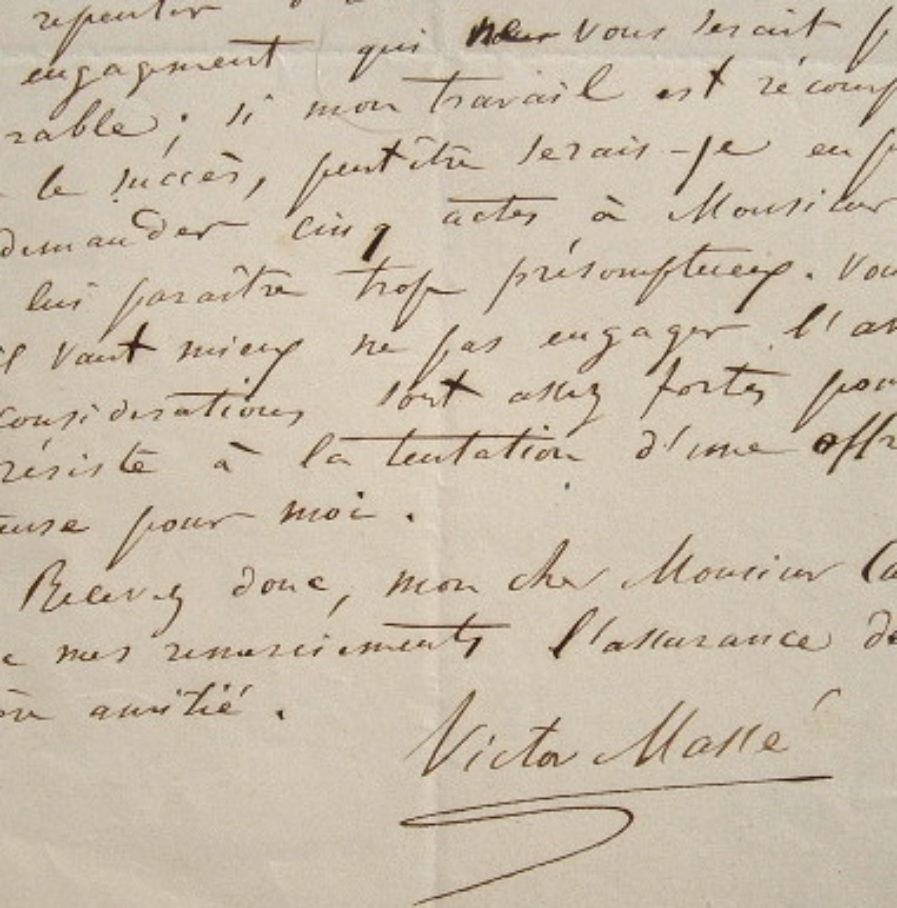 repentir d
engagement qui vous serait p
rable ; si mon travail est récomp
le succès, peutêtre serais-je en p
demander cinq actes à Monsieur
lui paraître trop présomptueux. Vou
il vaut mieux ne pas engager l'av
considérations sont assez fortes pour
résiste à la tentation d'une offre
euse pour moi.
Recevez donc, mon cher Monsieur Ca
mes remerciements l'assurance de
ère amitié.
Victor Massé